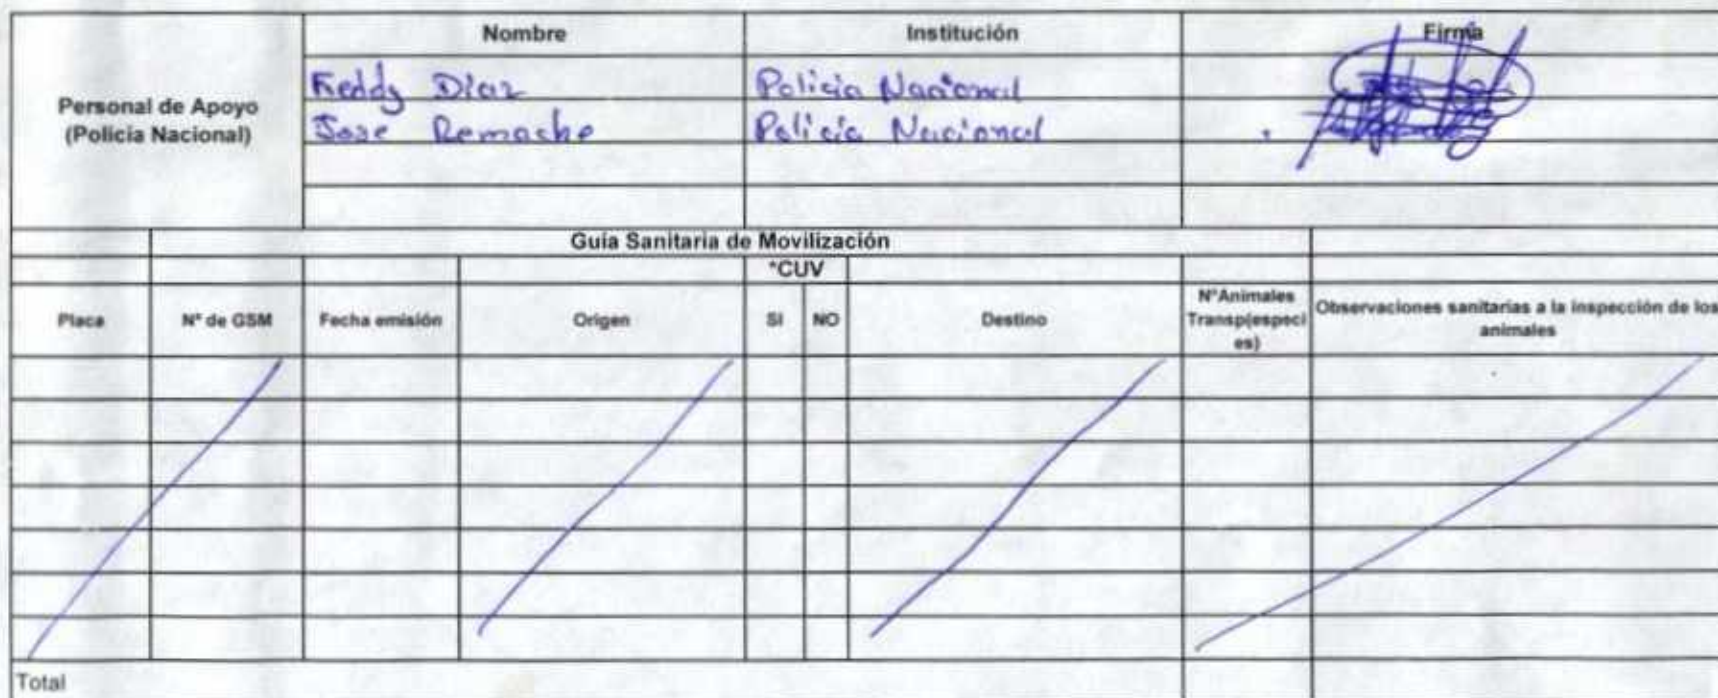 Nombre Institución Firma
Personal de Apoyo
(Policía Nacional)
Freddy Diaz Policia Nacional
Jose Remache Policia Nacional
Guía Sanitaria de Movilización
*CUV
Placa N° de GSM Fecha emisión Origen SI NO Destino N°Animales Transp(especi es) Observaciones sanitarias a la inspección de los animales
Total